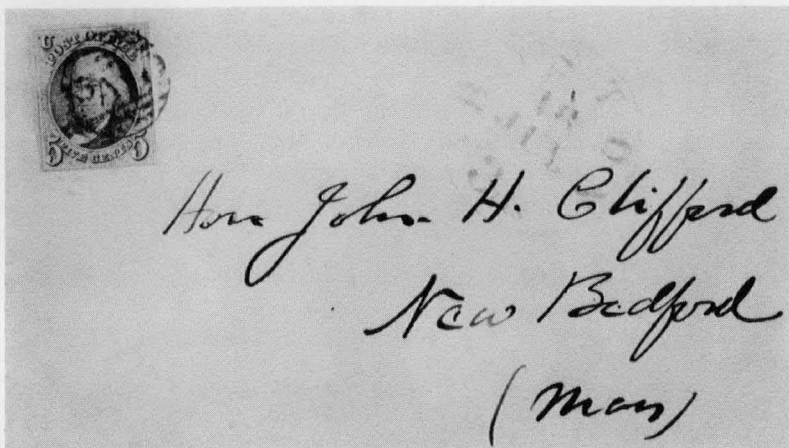 U
POST OFFICE
5 FIVE CENTS 5
Hon John H. Clifford
New Bedford
(Mass)